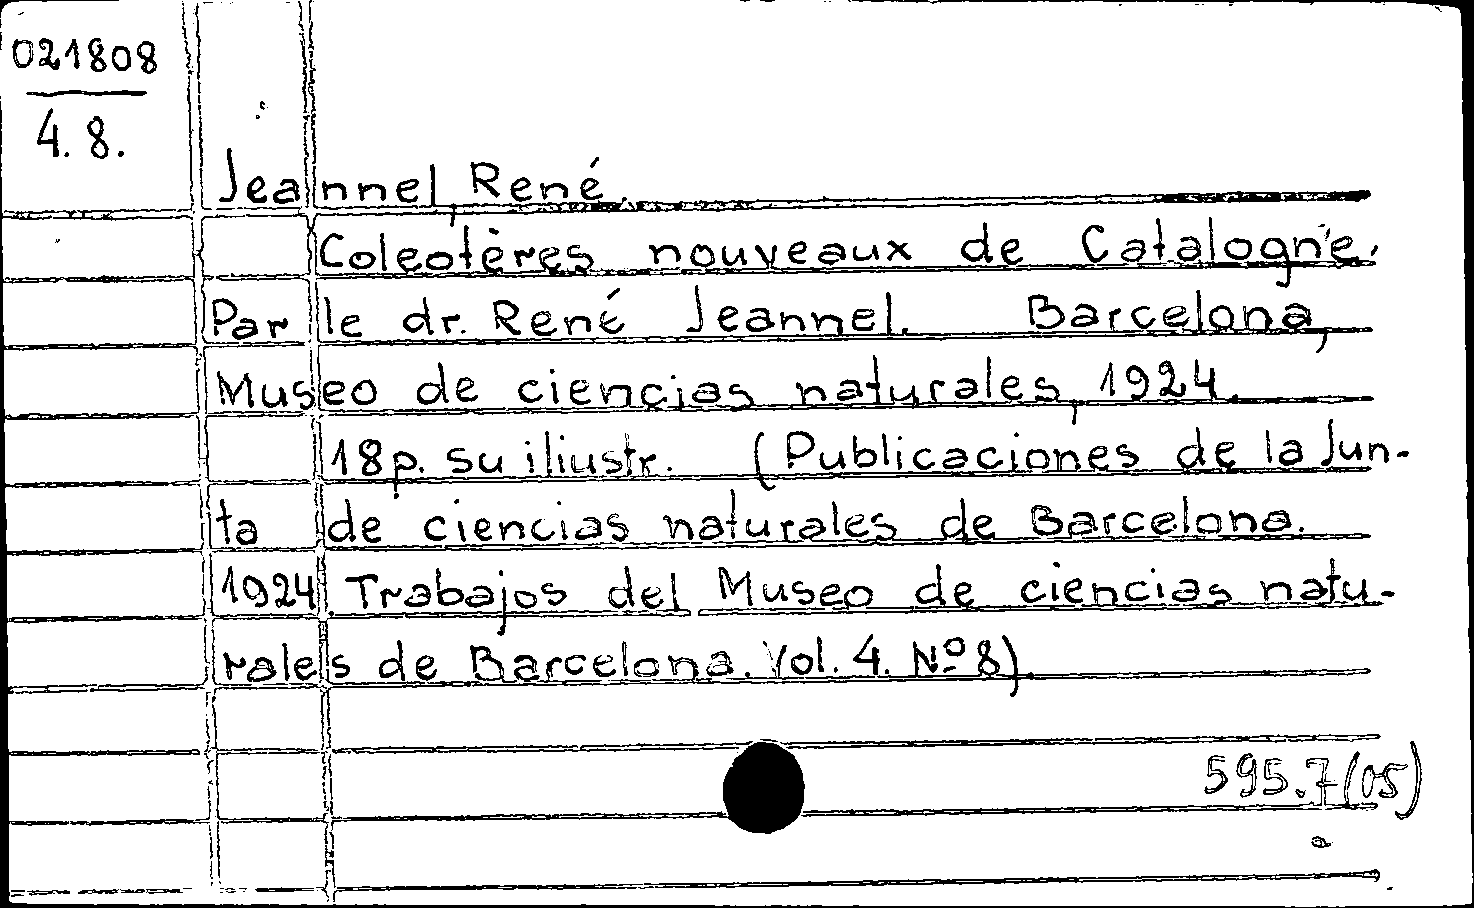 021808
4.8.
Jeannel, René.
Coleotères nouveaux de Catalogne.
Par le dr. René Jeannel. Barcelona,
Museo de ciencias naturales, 1924.
18p. su iliustr. (Publicaciones de la Jun-
ta de ciencias naturales de Barcelona.
1924. Trabajos del Museo de ciencias natu-
rales de Barcelona. Vol. 4. Nº 8)
595.7(05)